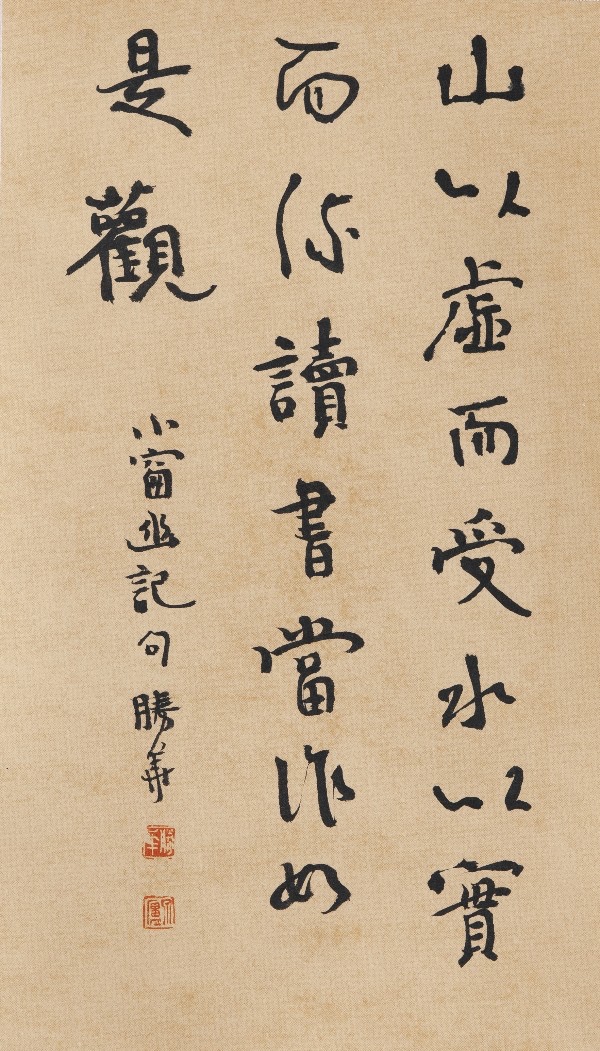 山以虛而受水以實
而流讀書當作如
是觀
小窗幽記句 勝華